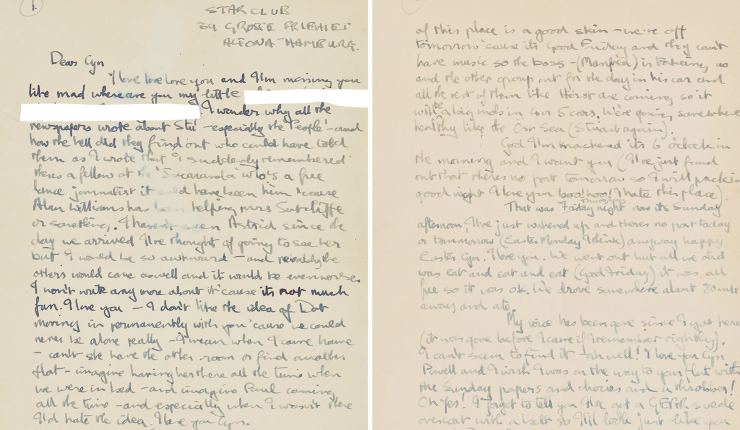 1.
STAR CLUB
39 GROSSE FREIHEIT
ALTONA HAMBURG.
Dear Cyn
I love love love you and I'm missing you
like mad where are you my little
I wonder why all the
newspapers wrote about Stu - especially the People - and
how the hell did they find out who could have told
them as I wrote that I suddenly remembered
theres a fellow at the Jacaranda who's a free
lance journalist it could have been him 'cause
Alan Williams has been helping Mrs Sutcliffe
or something. I haven't seen Astrid since the
day we arrived I've thought of going to see her
but I would be so awkward - and probably the
others would come as well and it would be even worse.
I won't write any more about it 'cause its not much
fun. I love you - I don't like the idea of Dot
moving in permanently with you 'cause we could
never be alone really - I mean when I come home
- can't she have the other room or find another
flat - imagine having her there all the time when
we were in bed - and imagine Paul coming
all the time - and especially when I wasn't there
I'd hate the idea. I love you Cyn.
of this place is a good skin - we're off
tomorrow 'cause its Good Friday and they can't
have music so the boss - (Manfred) is taking us
and the other group out for the day in his car and
all the rest of them like Horst are coming, so it
with a big kids in 4 or 5 cars. We're going somewhere
healthy like the Ost Sea (Stuart again).
God I'm knackered its 6 o'clock in
the morning and I want you (I've just found
out that theres no post tomorrow so I will pack in
goodnight I love you boo hoo! I hate this place)
That was Friday night now its Sunday
afternoon, I've just wakened up and theres no post today
or tomorrow (Easter Monday I think) anyway happy
Easter Cyn. I love you. We went out but all we did
was eat and eat and eat (Good Friday) it was all
free so it was ok. We drove somewhere about
away and ate
My voice has been gone since I got here
(it was gone before I came if I remember rightly).
I can't seem to find it - oh well! I love you Cyn
Powell and I wish I was on the way to your flat with
the Sunday papers and chocies and a throbber!
Oh Yes! I forgot to tell you I've got a GEAR suede
overcoat with a belt so I'll look just like you